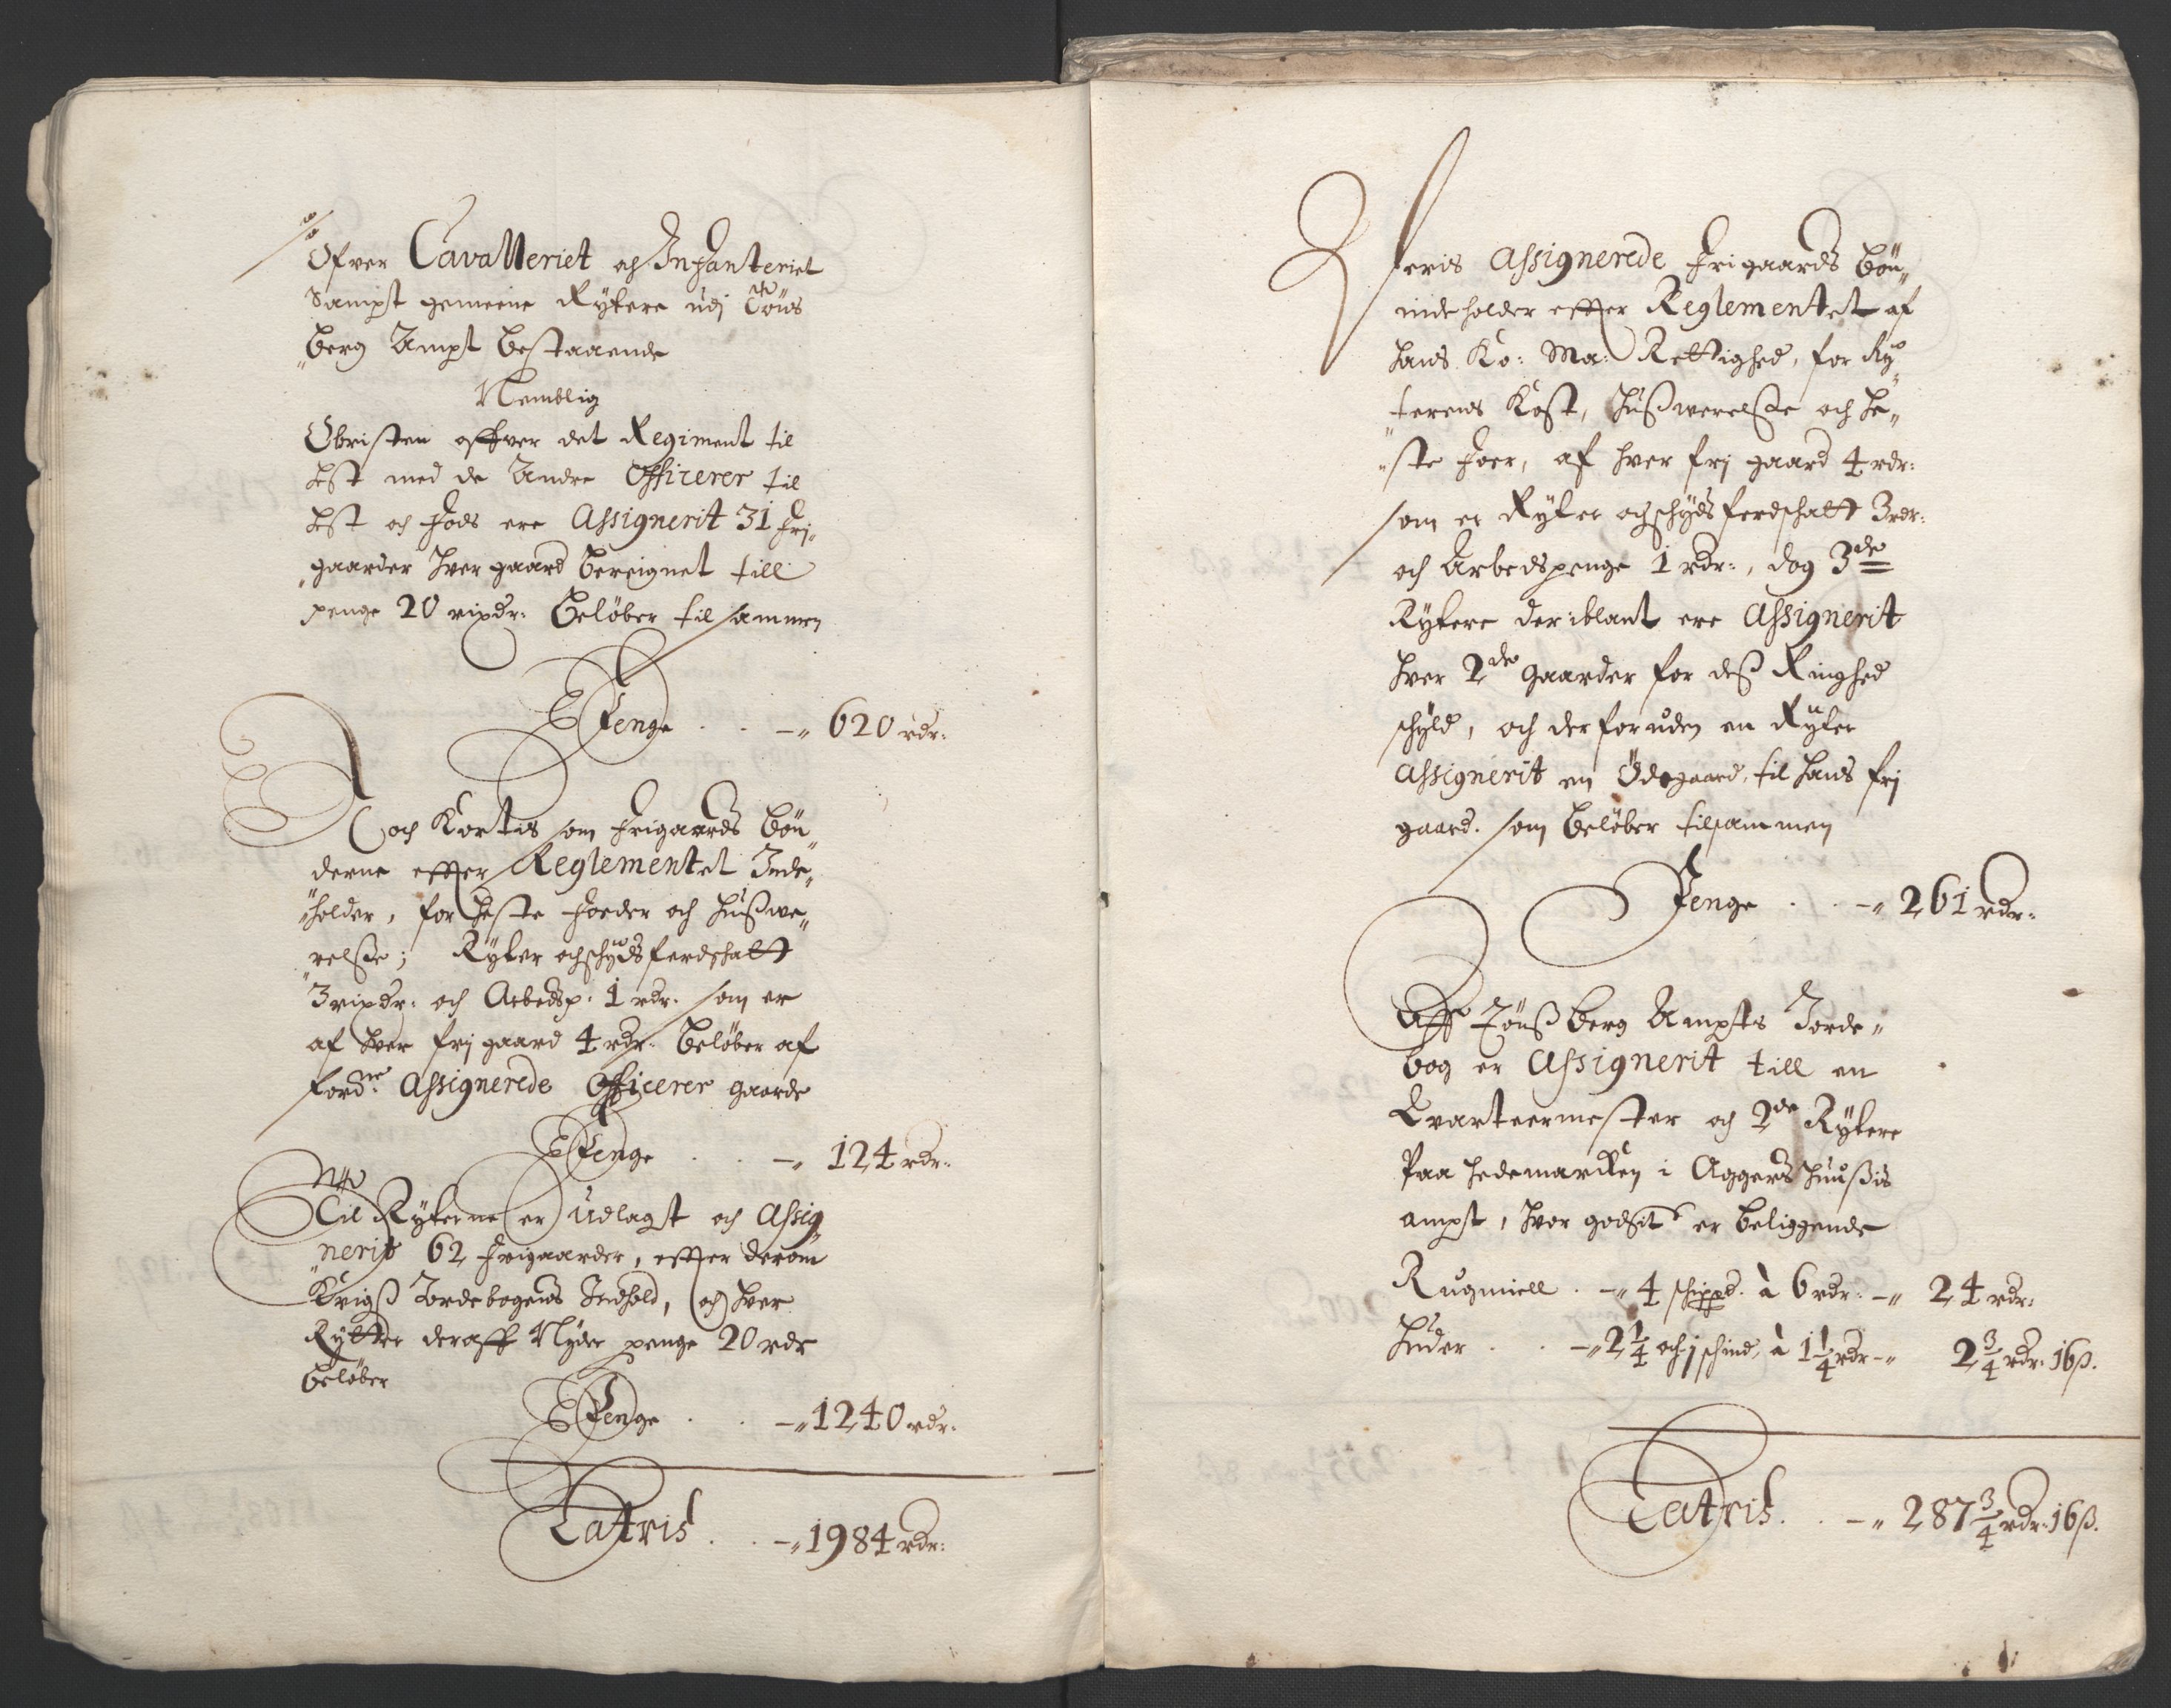 Ofver Cavalleriet och Infanteriet
Sampt gemeine Ryttere udj Tøns„
„berg Ampt Bestaaende
Nemblig
Obristen offver det Regiment til
Hest med de Andre Officerer til
Hest och Fods ere Assignerit 31 Fri„
„gaarder Hver gaard Bereignet till
penge 20 rixdr: Beløber til sammen
Penge . . –„ 620 rdr:
och Kortis som Frigaards Bøn„
derne effter Reglementet Inde„
„holder, for Heste Foeder och Hußwe„
„relße; Rytter och schydsferdschatt
3 rixdr: och Arbedsp: 1 rdr. som er
af Hver frj gaard 4 rdr: Beløber af
fordne: Assignerede Officerer gaarde
Penge . . –„ 124 rdr:
Til Rytterne er Udlagt och Assig„
„nerit 62 Frigaarder, effter derom
Krigß Jordebogens Indhold, och Hver
Rytter deraff Nyder penge 20 rdr
Beløber
Penge . . –„ 1240 rdr:
Latris . . –„ 1984 rdr:
Assignerede Frigaards Bøn„
inde holder effter Reglementet af
Hans Ko: Ma: Rettighed, for Ry„
„terens Kost, Hußwerelße och He„
„ste Foer, af Hver frj gaard 4 rdr:
som er Rytter och schydsferdschatt 3 rdr:
och Arbedspenge 1 rdr:, dog 3de
Ryttere der iblant ere Assignerit
Hver 2de Gaarder for deß Ringhed
schyld, och der foruden en Rytter
Assignerit en Ødegaard, til Hans frj
gaard. som Beløber tilsammen
Penge . . –„ 261 rdr:
Aff Tønßberg Ampts Jorde„
bog er Assignerit till en
Qvarteermester och 2de Ryttere
Paa Hedemarcken i Aggershuußis
ampt, Hvor godsit er Beliggende
Rugmiell . –„ 4 schippd. à 6 rdr: –„ 24 rdr:
Huder . . –„ 2 1/4 och 1 schind, à 1 1/4 rdr –„ 2 3/4 rdr: 16ß.
Latris . . –„ 287 3/4 rdr: 16ß.